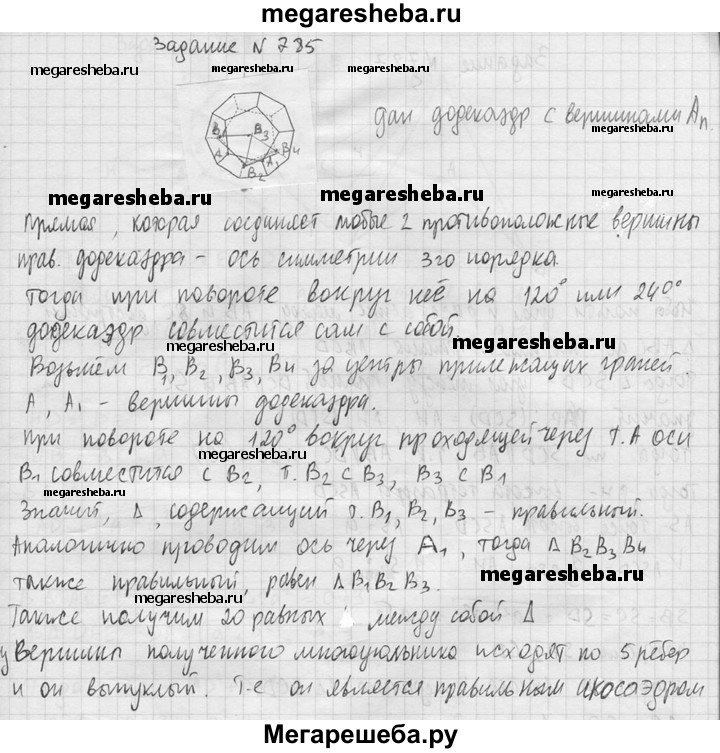 megaresheba.ru
Задание N 785
megaresheba.ru megaresheba.ru megaresheba.ru
B1 B3 B4 A A1 B2
дан додекаэдр с вершинами An.
megaresheba.ru
megaresheba.ru megaresheba.ru megaresheba.ru
Прямая, которая соединяет любые 2 противоположные вершины
прав. додекаэдра – ось симметрии 3го порядка.
megaresheba.ru megaresheba.ru
Тогда при повороте вокруг неё на 120° или 240°
додекаэдр совместится сам с собой.
megaresheba.ru megaresheba.ru
Возьмём B1, B2, B3, B4 за центры прилежащих граней.
A, A1 – вершины додекаэдра.
megaresheba.ru megaresheba.ru
При повороте на 120° вокруг проходящей через т. A оси
megaresheba.ru
B1 совместится с B2, т. B2 с B3, B3 с B1
megaresheba.ru
Значит, Δ, содержащий т. B1, B2, B3 – правильный.
megaresheba.ru
Аналогично проводим ось через A1, тогда Δ B2B3B4
также правильный, равен Δ B1B2B3.
megaresheba.ru
megaresheba.ru
Также получим 20 равных между собой Δ
megaresheba.ru
Из вершины полученного многоугольника исходят по 5 рёбер
и он выпуклый. Т.е он является правильным икосаэдром
Мегарешеба.ру